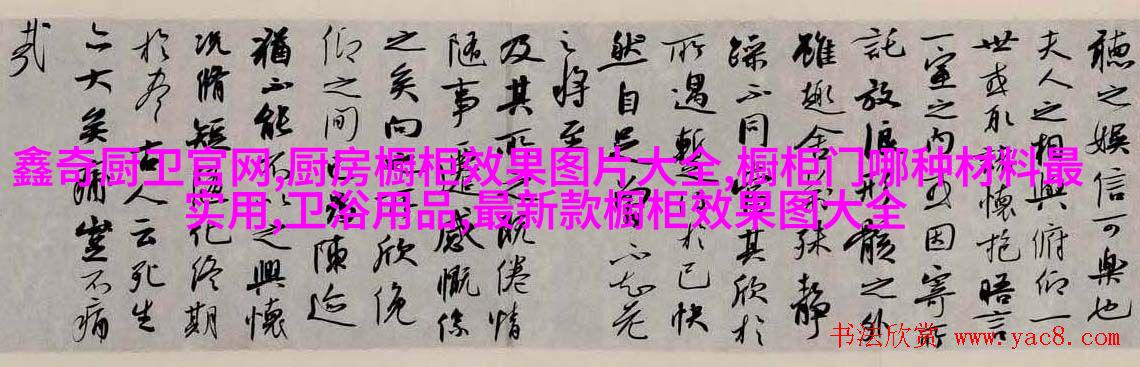 鑫奇厨卫官网,厨房橱柜效果图片大全,橱柜门哪种材料最
实用,卫浴用品,最新款橱柜效果图大全
聽之娛信可樂也
夫人之相與俯仰一
世或取懷抱晤言
一室之內或因寄所
託放浪形骸之外
雖趣舍萬殊靜
躁不同當其欣於
所遇暫得於己快
然自足不知老
之將至
及其所之既倦情
隨事遷感慨係
之矣向之所欣俛
仰之間以為陳迹
猶不能不以之興懷
況脩短隨化終期
於盡古人云死生
亦大矣豈不痛
哉
书法欣赏 www.yac8.com